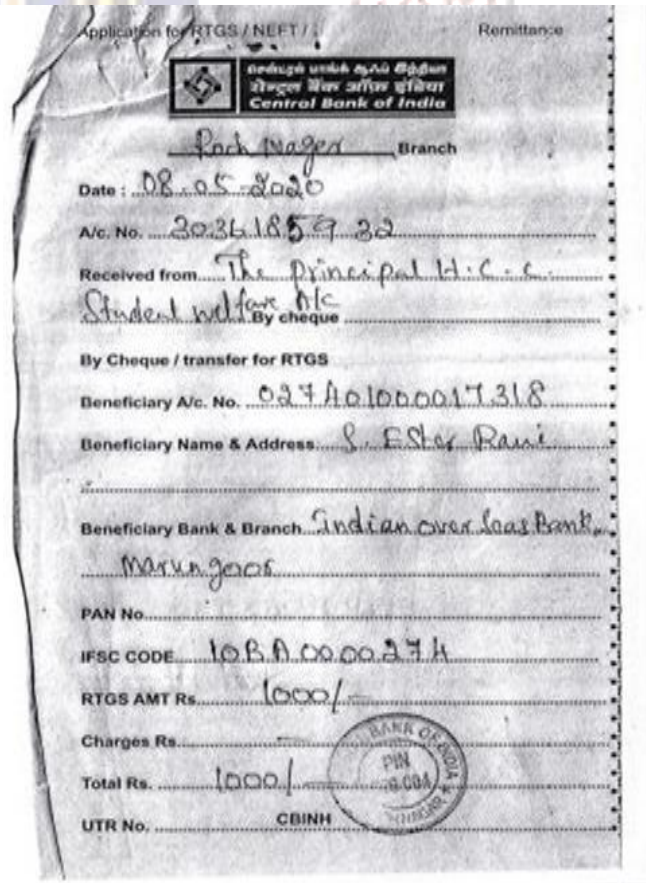 Application for RTGS / NEFT /
Remittance
சென்ட்ரல் பாங்க் ஆஃப் இந்தியா
सेन्ट्रल बैंक ऑफ इंडिया
Central Bank of India
Branch
Date : 08.05.2020
A/c. No. 2036185932
Received from The principal H.C.C.
Student welfare A/c By cheque
By Cheque / transfer for RTGS
Beneficiary A/c. No. 027401000017318
Beneficiary Name & Address S. Ester Rani
Beneficiary Bank & Branch Indian over Seas Bank
Marungoor
PAN No.
IFSC CODE IOBA0000274
RTGS AMT Rs. 1000/-
Charges Rs. -
Total Rs. 1000/-
BANK OF INDIA
PIN
UTR No. CBINH